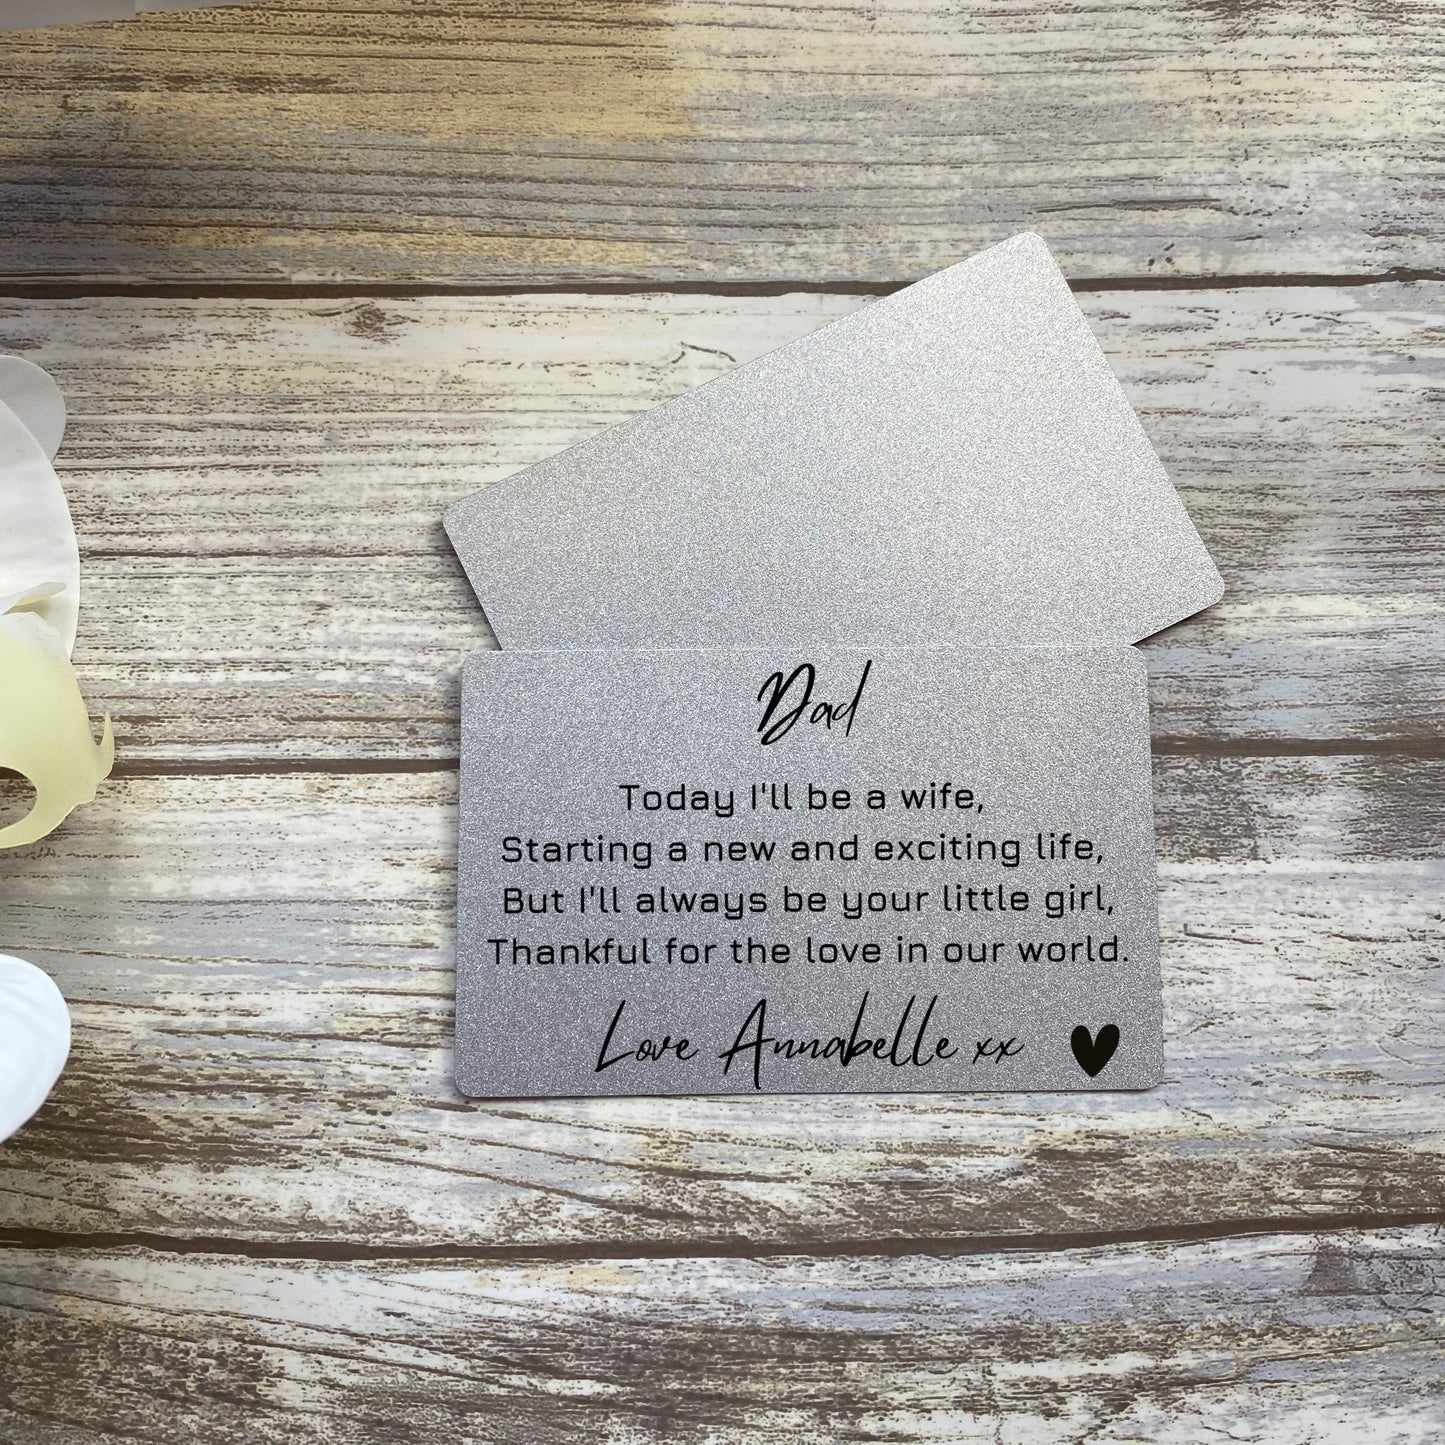 Dad
Today I'll be a wife,
Starting a new and exciting life,
But I'll always be your little girl,
Thankful for the love in our world.
Love Annabelle xx